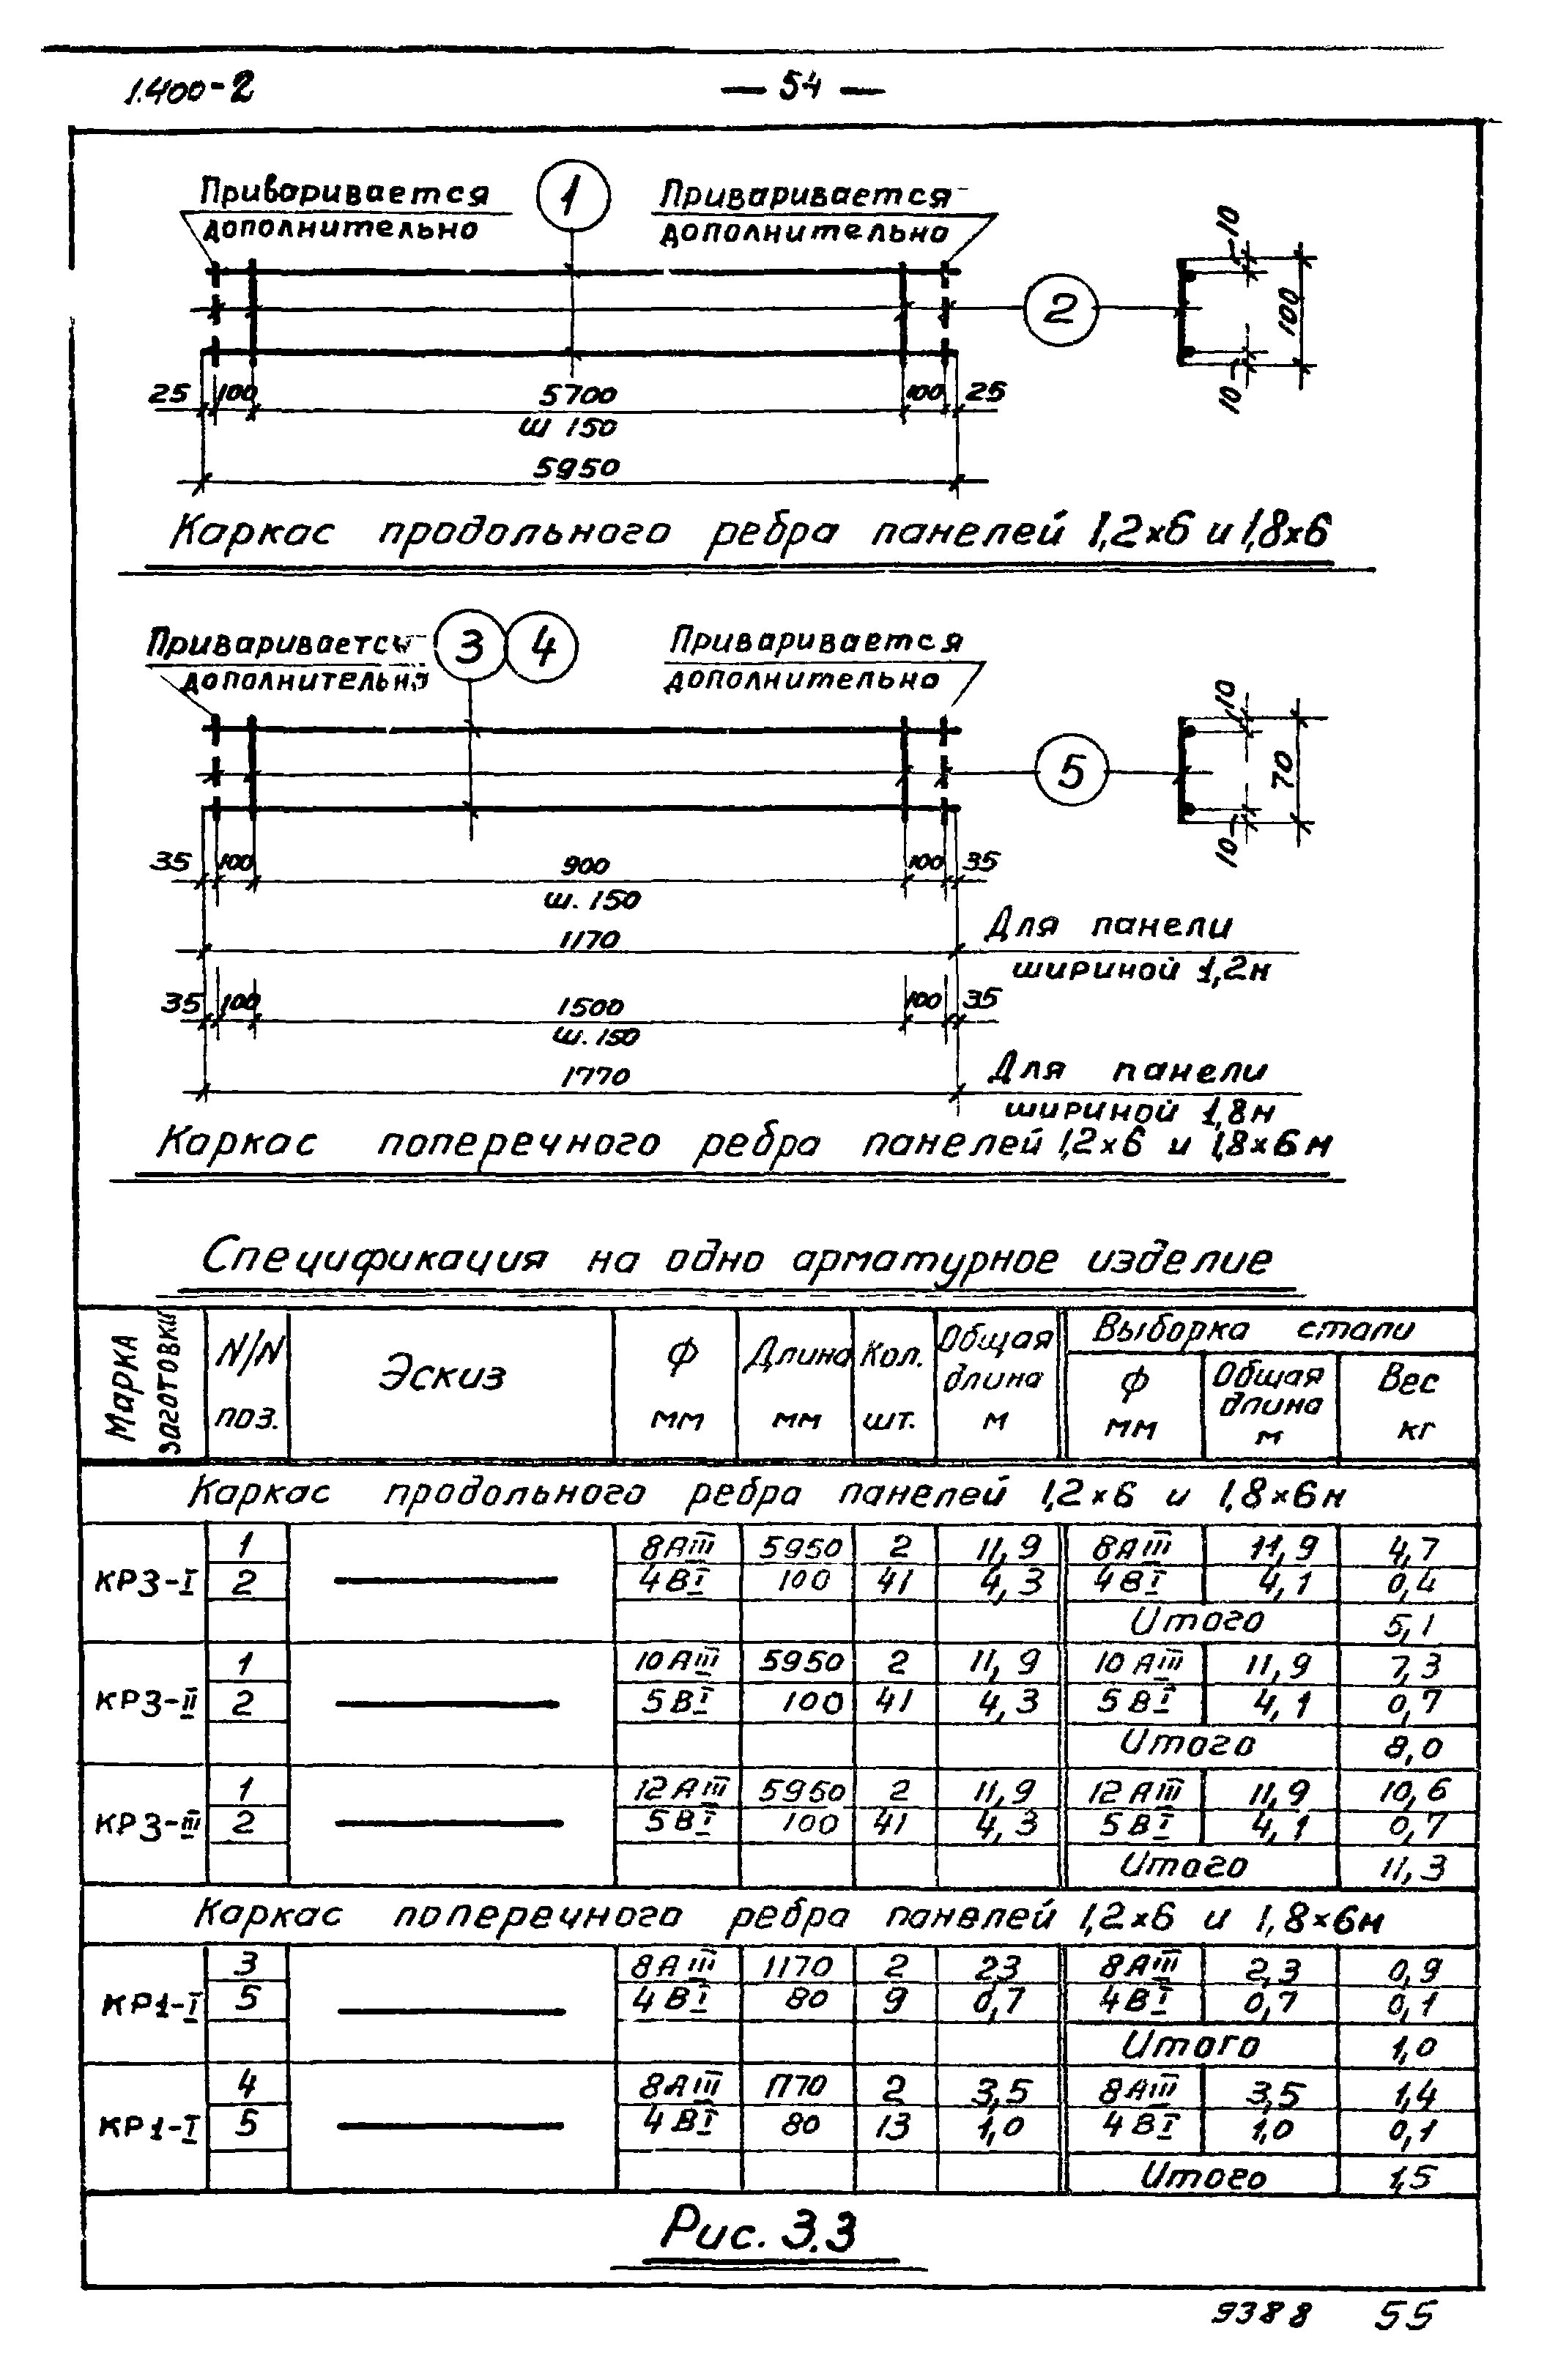 1.400-2
— 54 —
Приваривается
дополнительно
1
Приваривается
дополнительно
2
10
100
10
25 100 5700 100 25
Ш 150
5950
Каркас продольного ребра панелей 1,2×6 и 1,8×6
Приваривается
дополнительно
3 4
Приваривается
дополнительно
5
10
70
10
35 100 900 100 35
ш. 150
1170
Для панели
шириной 1,2м
35 100 1500 100 35
ш. 150
1770
Для панели
шириной 1,8м
Каркас поперечного ребра панелей 1,2×6 и 1,8×6м
Спецификация на одно арматурное изделие
Марка заготовки N/N поз. Эскиз ф мм Длина мм Кол. шт. Общая длина м Выборка стали
ф мм Общая длина м Вес кг
Каркас продольного ребра панелей 1,2×6 и 1,8×6м
КР3-I
1 8АIII 5950 2 11,9 8АIII 11,9 4,7
2 4ВI 100 41 4,3 4ВI 4,1 0,4
Итого 5,1
КР3-II
1 10АIII 5950 2 11,9 10АIII 11,9 7,3
2 5ВI 100 41 4,3 5ВI 4,1 0,7
Итого 8,0
КР3-III
1 12АIII 5950 2 11,9 12АIII 11,9 10,6
2 5ВI 100 41 4,3 5ВI 4,1 0,7
Итого 11,3
Каркас поперечного ребра панелей 1,2×6 и 1,8×6м
КР1-I
3 8АIII 1170 2 23 8АIII 2,3 0,9
5 4ВI 80 9 0,7 4ВI 0,7 0,1
Итого 1,0
КР1-I
4 8АIII 1770 2 3,5 8АIII 3,5 1,4
5 4ВI 80 13 1,0 4ВI 1,0 0,1
Итого 1,5
Рис. 3.3
9388 55